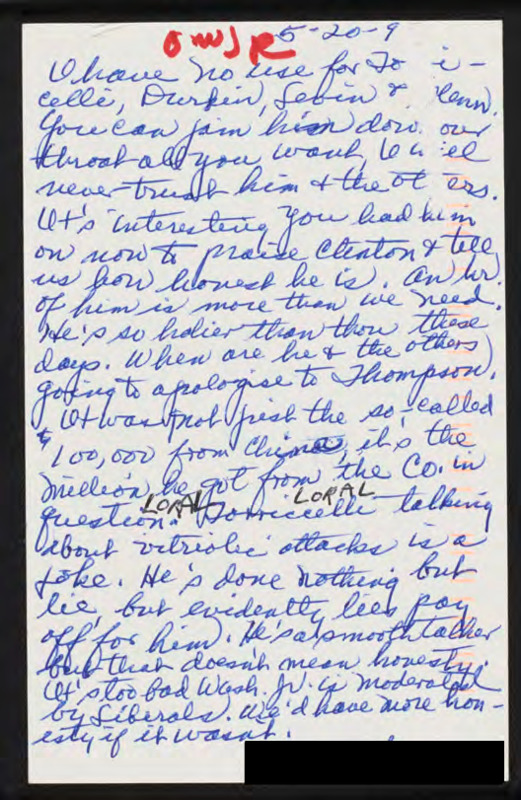 5-20-9
I have no use for To i-
celli, Durbin, Levin & lenn.
You can jam him dow our
throat all you want,
never trust him & the ot ers.
It's interesting you had him
on now to praise Clinton & tell
us how honest he is. An hr.
of him is more than we need.
He's so holier than thou these
days. When are he & the others
going to apologise to Thompson.
It was not just the so-called
$100,000 from China, it's the
million he got from the Co. in
LORAL LORAL
question. Torricelli talking
about vitriolic attacks is a
joke. He's done nothing but
lie, but evidently lies pay
off for him. He's a smooth talker
but that doesn't mean honesty.
It's too bad Wash. Jr. is moderated
by Liberals. We'd have more hon-
esty if it wasn't.